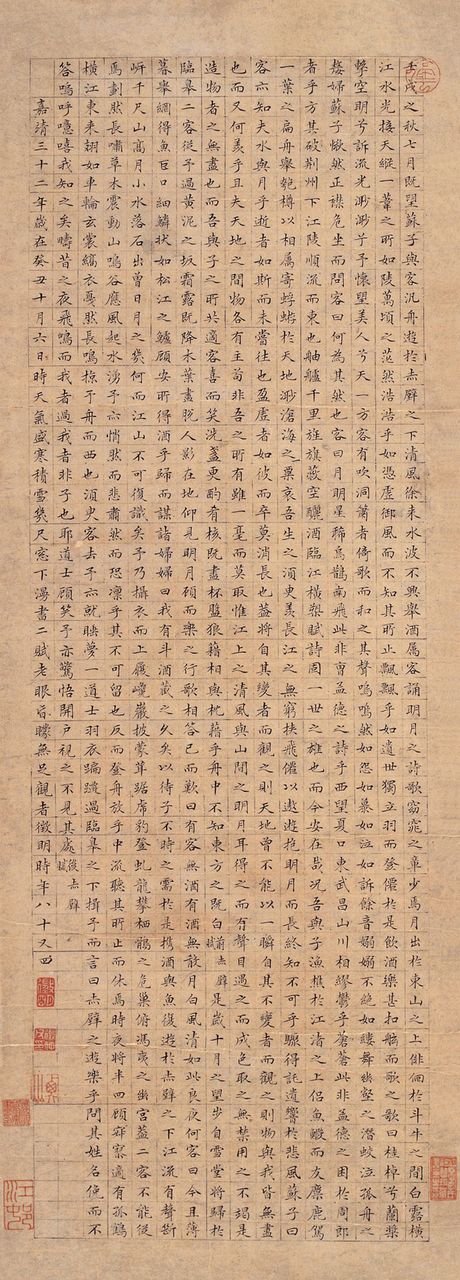 壬戌之秋七月既望蘇子與客汎舟遊於赤壁之下清風徐來水波不興舉酒屬客誦明月之詩歌窈窕之章少焉月出於東山之上徘徊於斗牛之間白露橫
江水光接天縱一葦之所如陵萬頃之茫然浩浩乎如憑虛御風而不知其所止飄飄乎如遺世獨立羽而登僊於是飲酒樂甚扣舷而歌之歌曰桂棹兮蘭槳
擊空明兮泝流光渺渺兮予懷望美人兮天一方客有吹洞簫者倚歌而和之其聲嗚嗚然如怨如慕如泣如訴餘音嫋嫋不絕如縷舞幽壑之潛蛟泣孤舟之
嫠婦蘇子愀然正襟危坐而問客曰何為其然也客曰月明星稀烏鵲南飛此非曹孟德之詩乎西望夏口東武昌山川相繆鬱乎蒼蒼此非孟德之困於周郎
者乎方其破荊州下江陵順流而東也舳艫千里旌旗蔽空釃酒臨江橫槊賦詩固一世之雄也而今安在哉況吾與子漁樵於江渚之上侶魚鰕而友麋鹿駕
一葉之扁舟舉匏樽以相屬寄蜉蝣於天地渺滄海之粟哀吾生之須臾羨長江之無窮挾飛僊以遨遊抱明月而長終知不可乎驟得託遺響於悲風蘇子曰
客亦知夫水與月乎逝者如斯而未嘗往也盈虛者如彼而卒莫消長也蓋將自其變者而觀之則天地曾不能以一瞬自其不變者而觀之則物與我皆無盡
也而又何羨乎且夫天地之間物各有主苟非吾之所有雖一毫而莫取惟江上之清風與山間之明月耳得之而有聲目遇之而成色取之無禁用之不竭是
造物者之無盡也而吾與子之所共適客喜而笑洗盞更酌肴核既盡杯盤狼藉相與枕藉乎舟中不知東方之既白前赤壁賦是歲十月之望步自雪堂將歸於
臨皋二客從予過黃泥之坂霜露既降木葉盡脫人影在地仰見明月顧而樂之行歌相答已而歎曰有客無酒有酒無殽月白風清如此良夜何客曰今且薄
暮舉網得魚巨口細鱗狀如松江之鱸顧安所得酒乎歸而謀諸婦婦曰我有斗酒藏之久矣以待子不時之需於是攜酒與魚復遊於赤壁之下江流有聲斷
岸千尺山高月小水落石出曾日月之幾何而江山不可復識矣予乃攝衣而上履巉巖披蒙茸踞虎豹登虬龍攀栖鶻之危巢俯馮夷之幽宮蓋二客不能從
焉劃然長嘯草木震動山鳴谷應風起水湧予亦悄然而悲肅然而恐凜乎其不可留也反而登舟放乎中流聽其所止而休焉時夜將半四顧寂寥適有孤鶴
橫江東來翅如車輪玄裳縞衣戛然長鳴掠予舟而西也須臾客去予亦就睡夢一道士羽衣蹁躚過臨皋之下揖予而言曰赤壁之遊樂乎問其姓名俛而不
答嗚呼噫嘻我知之矣疇昔之夜飛鳴而我者過我者非子也耶道士顧笑予亦驚悟開戶視之不見其處後赤壁賦
嘉靖三十二年歲在癸丑十月六日時天氣盛寒積雪幾尺窓下漫書二賦老眼昏曚無足觀者徵明時年八十又四